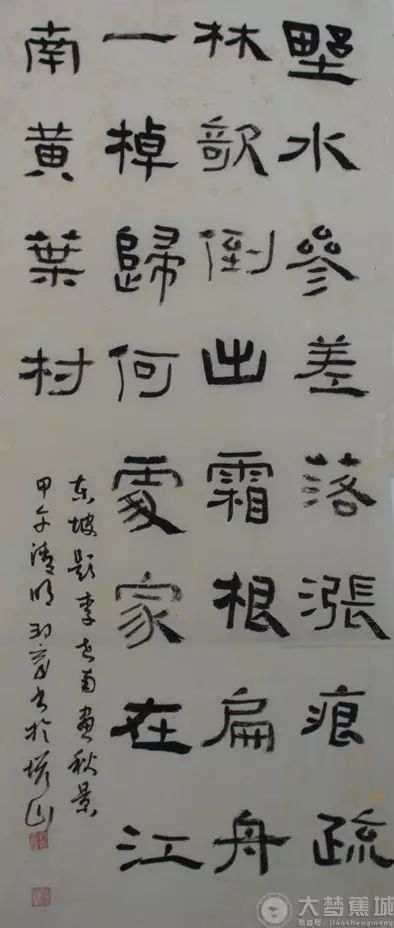 野水參差落漲痕疏
林欹倒出霜根扁舟
一棹歸何處家在江
南黄葉村
东坡题李世南画秋景
甲午清明书於山
大梦蕉城